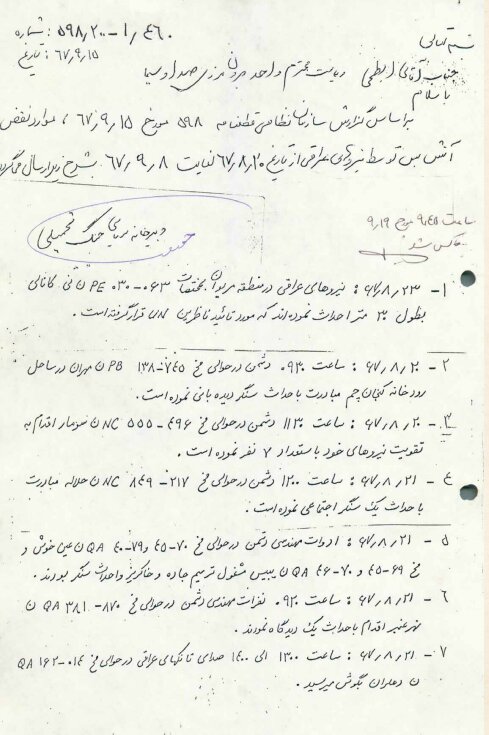 بسمه تعالی
شماره : ۵۹۸٫۲۰۰-۱٫۴۶۰
تاریخ : ۶۷٫۹٫۱۵
جناب آقای ابطحی ریاست محترم واحد برون مرزی صدا و سیما
با سلام
بر اساس گزارش سازمان نظامی قطعنامه ۵۹۸ مورخ ۶۷٫۹٫۱۵ ، موارد نقض
آتش بس توسط نیروهای عراقی از تاریخ ۶۷٫۸٫۲۰ لغایت ۶۷٫۹٫۸ بشرح زیر ارسال می گردد
دبیرخانه جنگ تحمیلی
ساعت ۹٫۴۵ مورخ ۹٫۱۹
فاکس شد
۱- ۶۷٫۸٫۲۳ : نیروهای عراقی در منطقه مریوان بمختصات PE ۰۳۰-۰۶۳ کانالی
بطول ۳۰ متر احداث نموده اند که مورد تائید ناظرین UN قرار گرفته است .
۲- ۶۷٫۸٫۲۰ : ساعت ۰۹۳۰ دشمن در حوالی مخ PB ۱۳۸-۷۴۵ ن مهران در ساحل
رودخانه کنجان چم مبادرت باحداث سنگر دیده بانی نموده است .
۳- ۶۷٫۸٫۲۰ : ساعت ۱۱۳۰ دشمن در حوالی مخ NC ۵۵۵-۴۹۶ ن سومار اقدام به
تقویت نیروهای خود با استعداد ۷ نفر نموده است .
۴- ۶۷٫۸٫۲۱ : ساعت ۱۲۰۰ دشمن در حوالی مخ NC ۸۴۹-۲۱۷ ن حلاله مبادرت
باحداث یک سنگر اجتماعی نموده است .
۵- ۶۷٫۸٫۲۱ : ادوات مهندسی دشمن در حوالی مخ ۷۰-۴۵ و QA ۴۰-۷۹ ن عین خوش و
مخ ۶۹-۴۵ و ۷۰-۴۶ QA ن بیس مشغول ترمیم جاده و خاکریز و احداث سنگر بودند .
۶- ۶۷٫۸٫۲۱ : ساعت ۰۹۲۰ نفرات مهندسی دشمن در حوالی مخ QA ۳۸۱-۸۷۰ ن
نهر عنبر اقدام باحداث یک دیدگاه نمودند .
۷- ۶۷٫۸٫۲۱ : ساعت ۱۳۰۰ الی ۱۴۰۰ صدای تانکهای عراقی در حوالی مخ QA ۱۶۲-۰۱۴
ن دهلران بگوش میرسید .